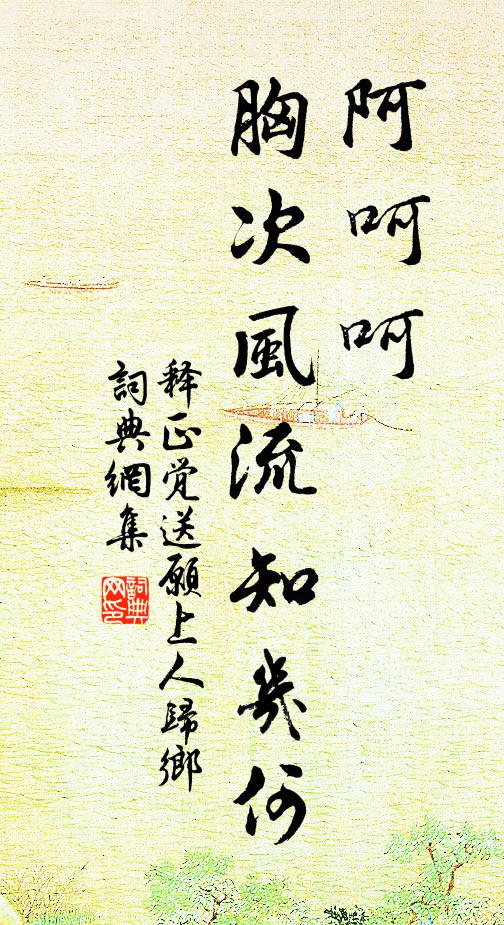 阿呵呵
胸次風流知幾何
释正觉送願上人歸鄉
詞典網集
詞典
网印